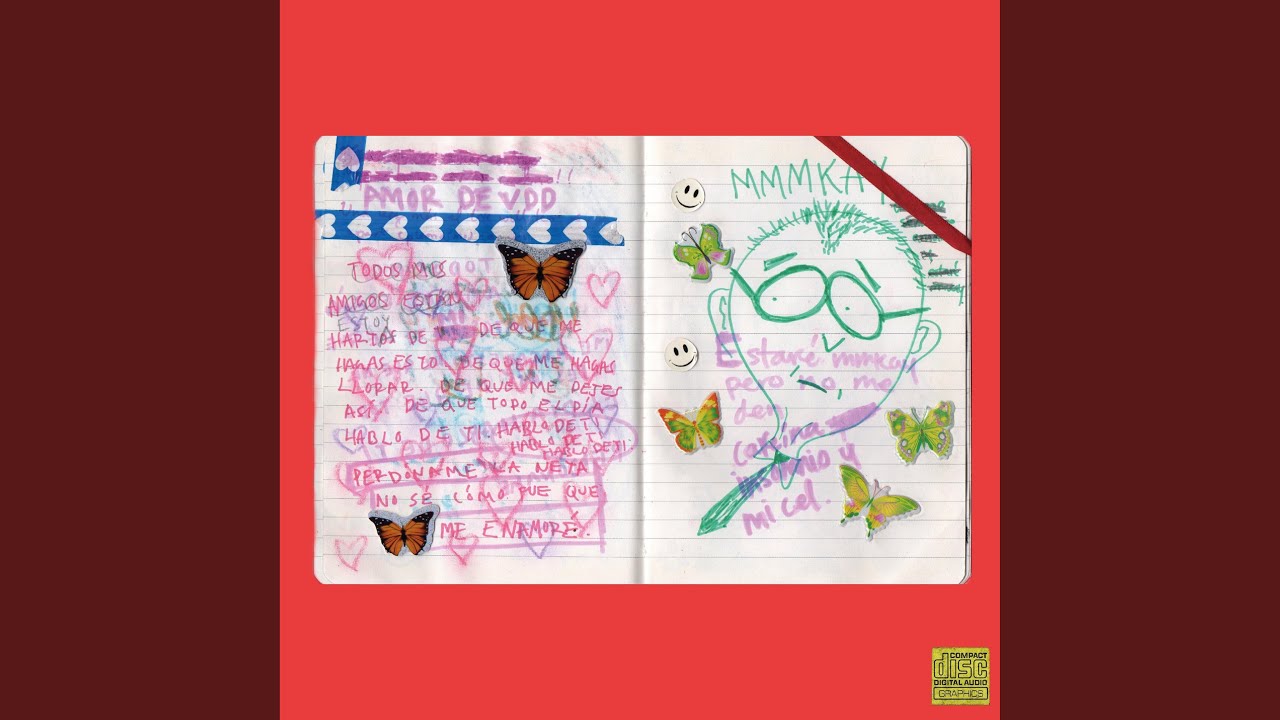 AMOR DE VDD
TODOS MIS
AMIGOS ESTÁN
ESTOY
HARTOS DE DE QUE ME
HAGAS ESTO. DE QUE ME HAGAS
LLORAR. DE QUE ME DEJES
ASÍ. DE QUE TODO EL DÍA
HABLO DE TI. HABLO DE TI
HABLO DE TI
HABLO DE TI.
PERDÓNAME LA NETA
NO SÉ CÓMO FUE QUE
ME ENAMORÉ.
MMMKAY
Estaré mmkay
pero no me
den
insomnio y
mi cel.
COMPACT
disc
DIGITAL AUDIO
GRAPHICS